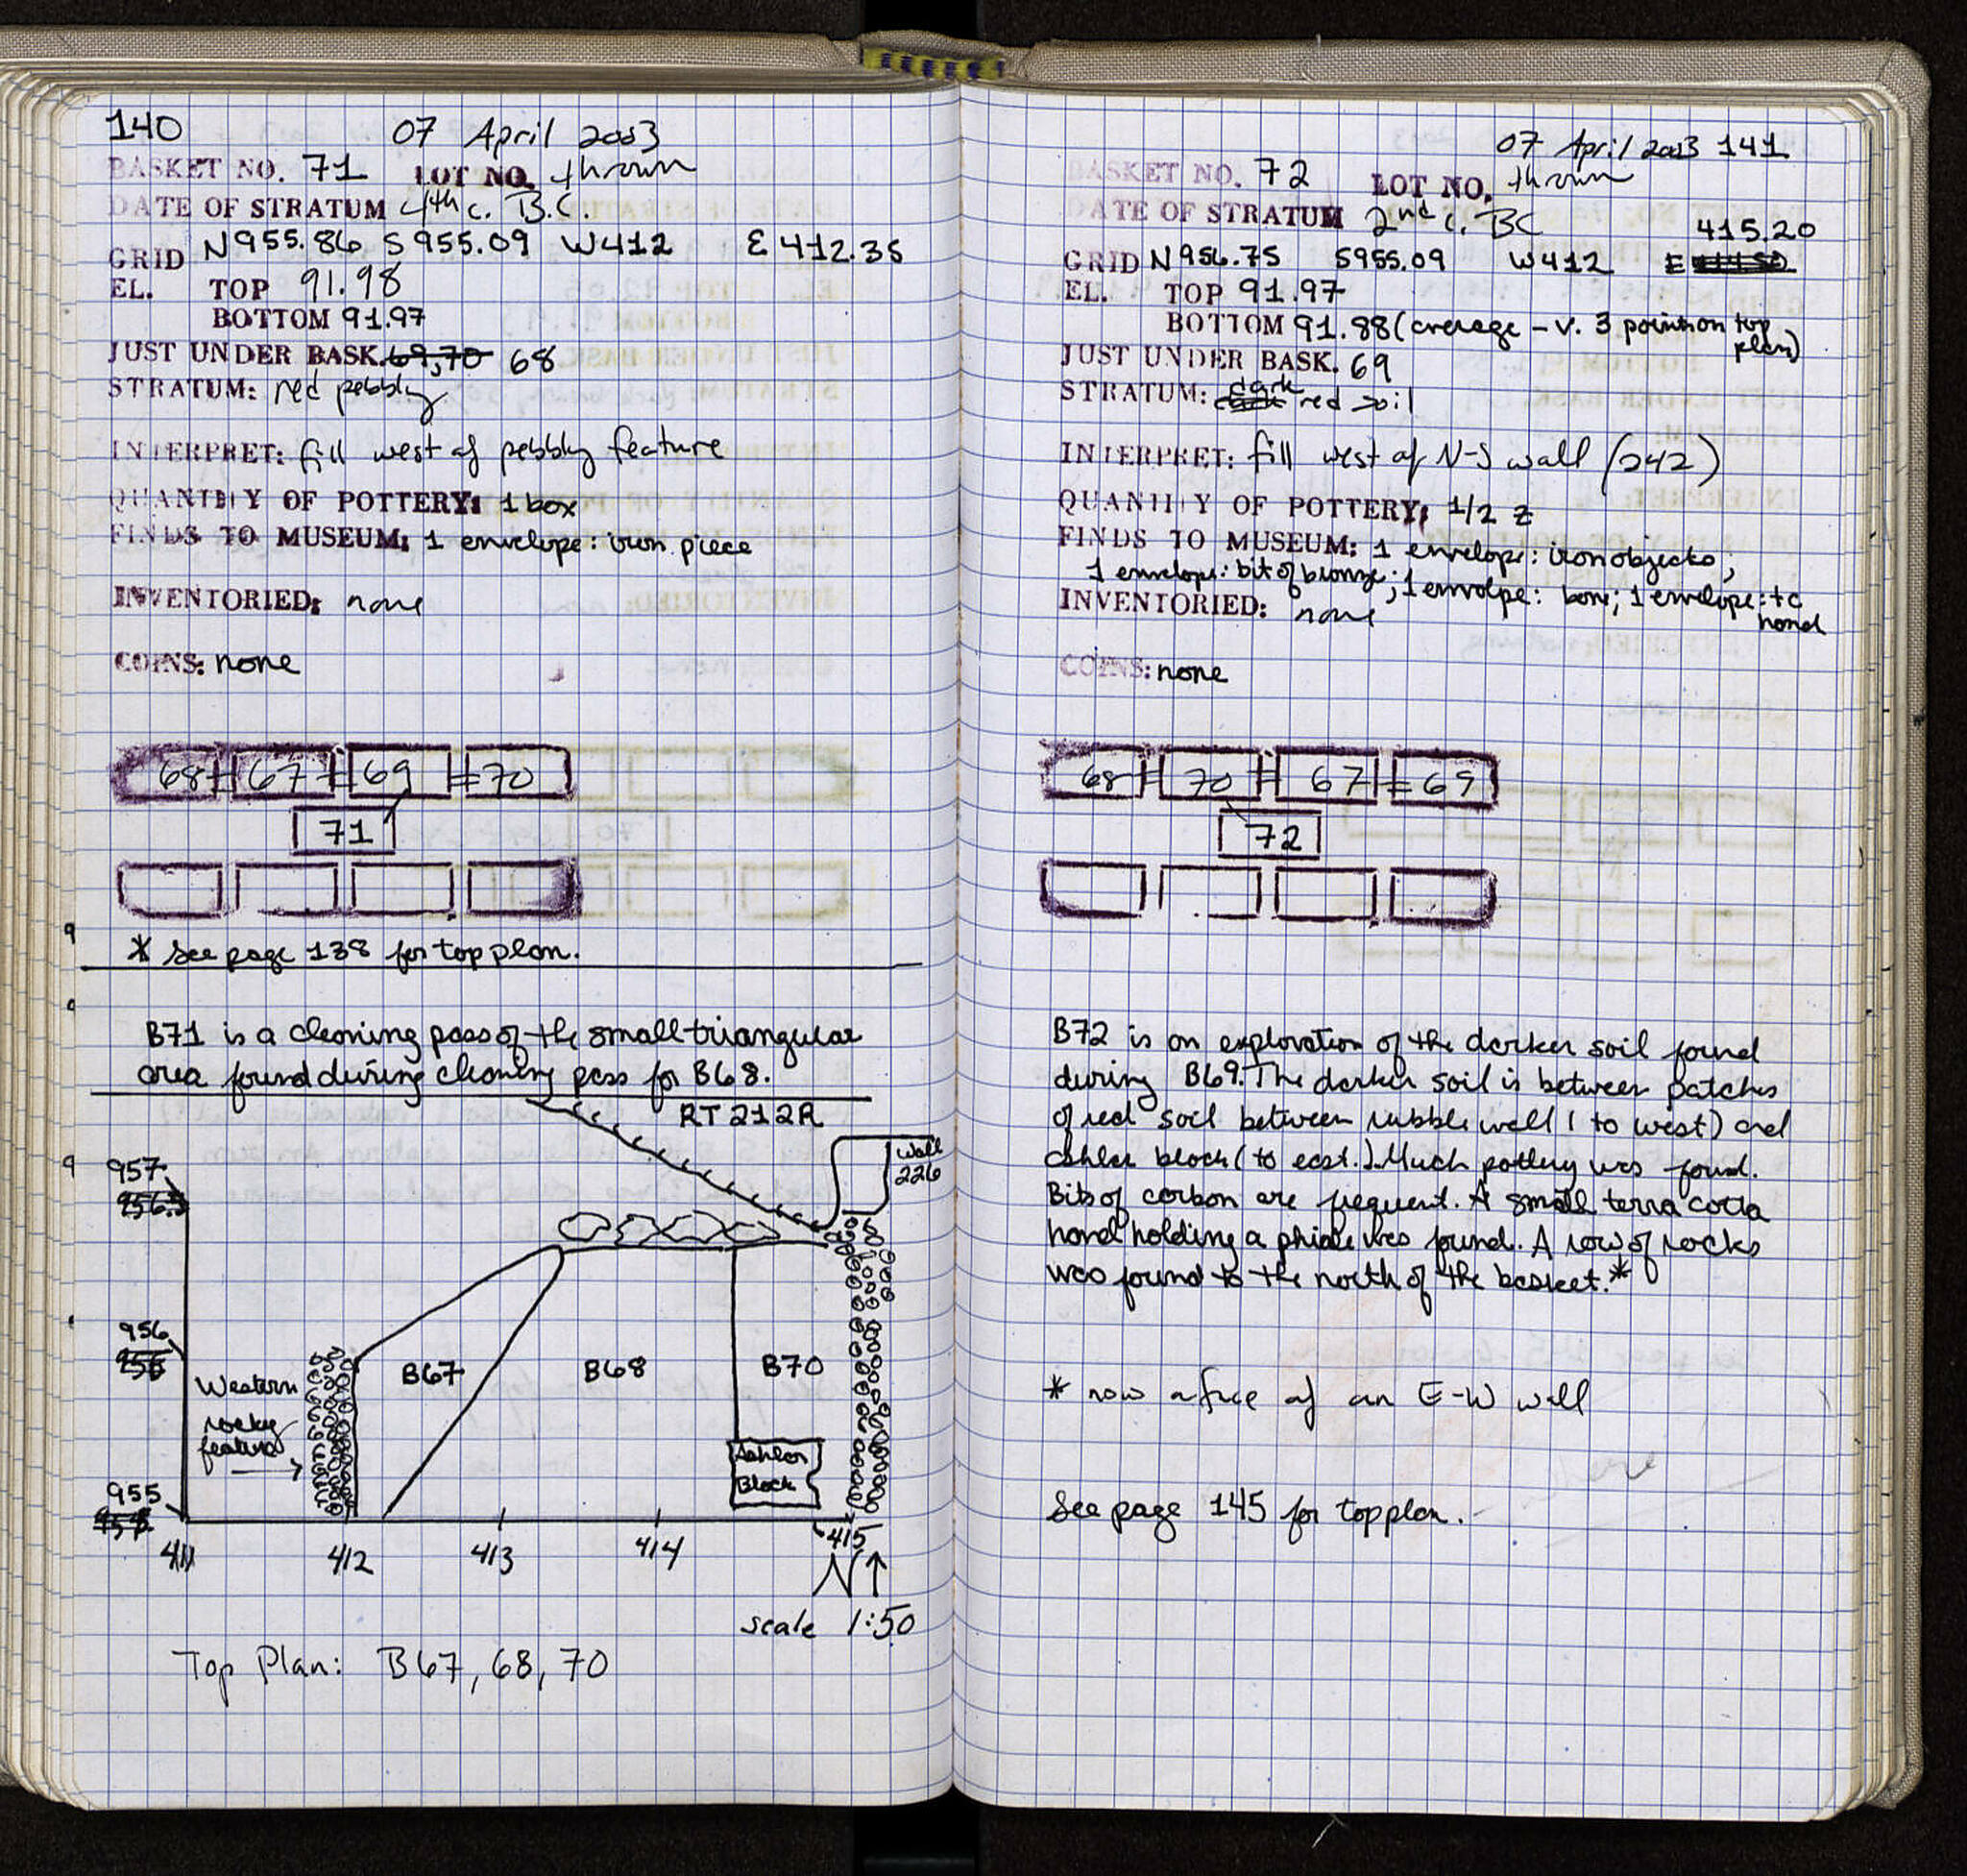 140 07 April 2003
BASKET NO. 71 LOT NO. thrown
DATE OF STRATUM 4th c. B.C.
GRID N955.86 S955.09 W412 E412.35
EL. TOP 91.98
BOTTOM 91.97
JUST UNDER BASK. 69,70 68
STRATUM: red pebbly
INTERPRET: fill west of pebbly feature
QUANTITY OF POTTERY: 1 box
FINDS TO MUSEUM: 1 envelope: iron piece
INVENTORIED: none
COINS: none
68 = 67 = 69 = 70
71
* See page 138 for top plan.
B71 is a cleaning pass of the small triangular
area found during cleaning pass for B68.
RT 212R
Wall
226
957
956.5
956
955
B67 B68 B70
Western
rocky
feature
Ashlar
Block
955
411 412 413 414 415
N
scale 1:50
Top Plan: B67, 68, 70
07 April 2003 141
BASKET NO. 72 LOT NO. thrown
DATE OF STRATUM 2nd c. BC
415.20
GRID N956.75 S955.09 W412 E
EL. TOP 91.97
BOTTOM 91.88 (average - v. 3 points on top
plan)
JUST UNDER BASK. 69
STRATUM: dark red soil
INTERPRET: fill west of N-S wall (242)
QUANTITY OF POTTERY: 1/2 z
FINDS TO MUSEUM: 1 envelope: iron objects;
1 envelope: bit of bronze; 1 envolpe: bone; 1 envelope: tc
hand
INVENTORIED: none
COINS: none
68 = 70 = 67 = 69
72
B72 is an exploration of the darker soil found
during B69. The darker soil is between patches
of red soil between rubble wall (to west) and
ashlar block (to east.). Much pottery was found.
Bits of carbon are frequent. A small terra cotta
hand holding a phiale was found. A row of rocks
was found to the north of the basket.*
* now a face of an E-W wall
See page 145 for top plan.